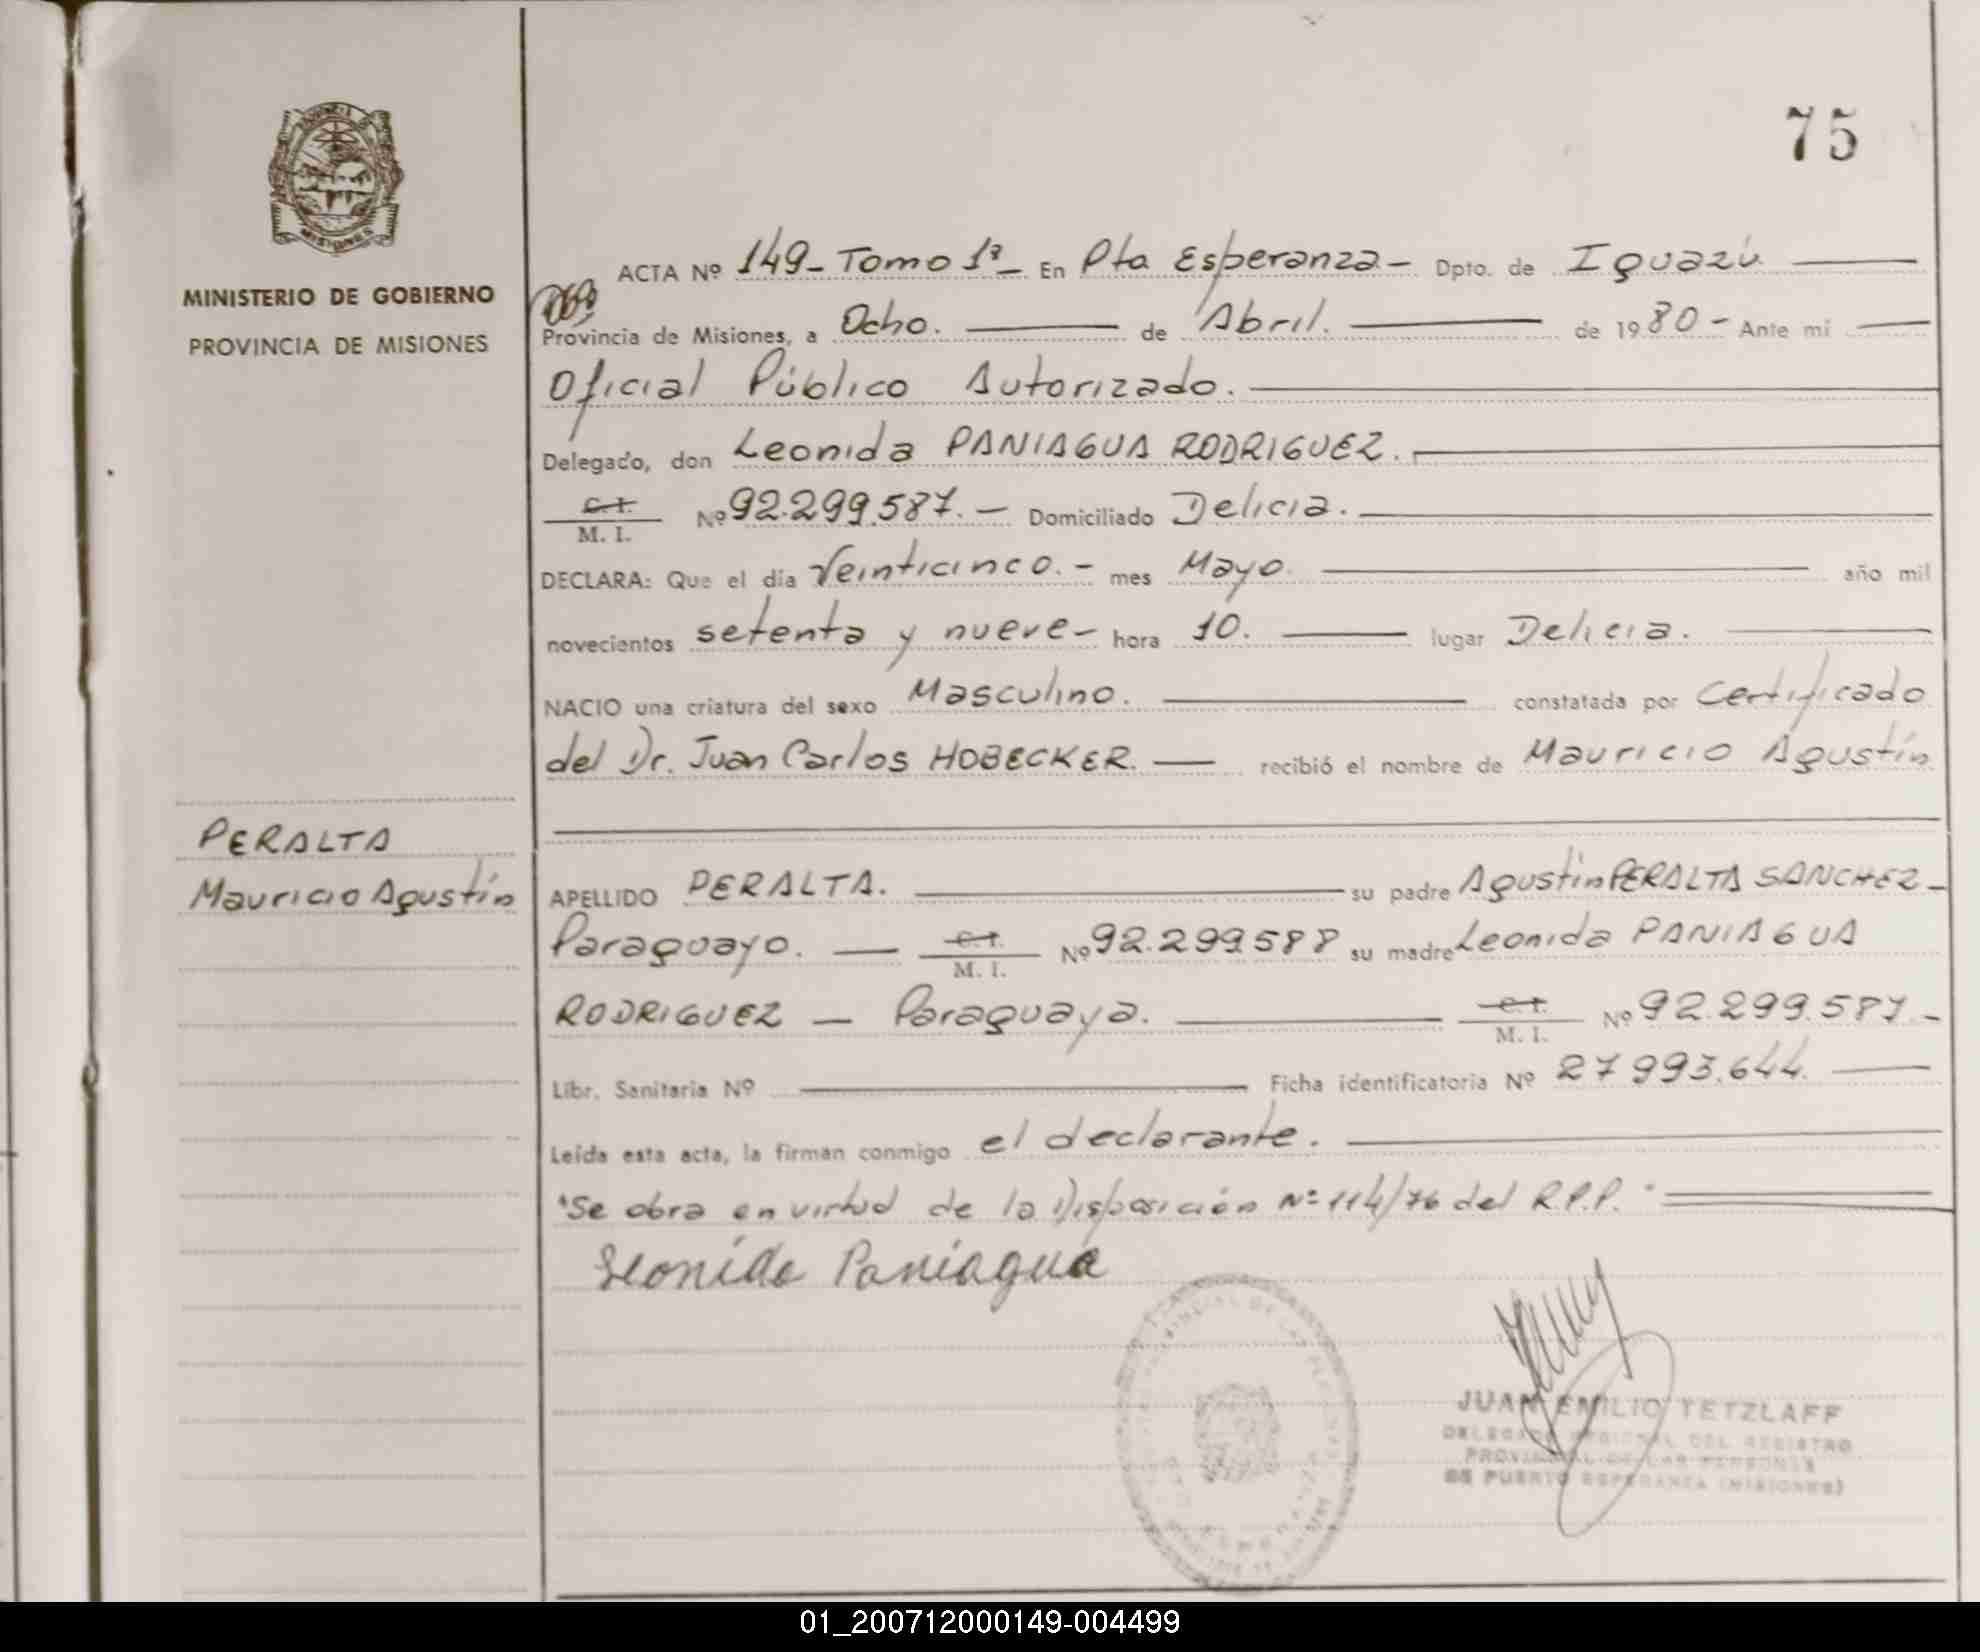 75
MISIONES
MINISTERIO DE GOBIERNO
PROVINCIA DE MISIONES
ACTA Nº 149- Tomo 1º- En Pto Esperanza- Dpto. de Iguazú
Provincia de Misiones, a Ocho. de Abril. de 1980- Ante mí
Oficial Público Autorizado.
Delegado, don Leonida PANIAGUA RODRIGUEZ.
C. I.
M. I. Nº 92.299.587.- Domiciliado Delicia.
DECLARA: Que el día Veinticinco.- mes Mayo. año mil
novecientos setenta y nueve- hora 10. lugar Delicia.
NACIO una criatura del sexo Masculino. constatada por Certificado
del Dr. Juan Carlos HOBECKER. recibió el nombre de Mauricio Agustín
PERALTA
Mauricio Agustín
APELLIDO PERALTA. su padre Agustín PERALTA SANCHEZ-
Paraguayo. C. I. M. I. Nº 92.299588 su madre Leonida PANIAGUA
RODRIGUEZ - Paraguaya. C. I. M. I. Nº 92.299.587.-
Libr. Sanitaria Nº Ficha identificatoria Nº 27993.644.
Leída esta acta, la firman conmigo el declarante.
"Se obra en virtud de la Disposición Nº 114/76 del R.P.P."
Leonida Paniagua
JUAN EMILIO TETZLAFF
DELEGADO REGIONAL DEL REGISTRO
PROVINCIAL DE LAS PERSONAS
DE PUERTO ESPERANZA (MISIONES)
01_200712000149-004499